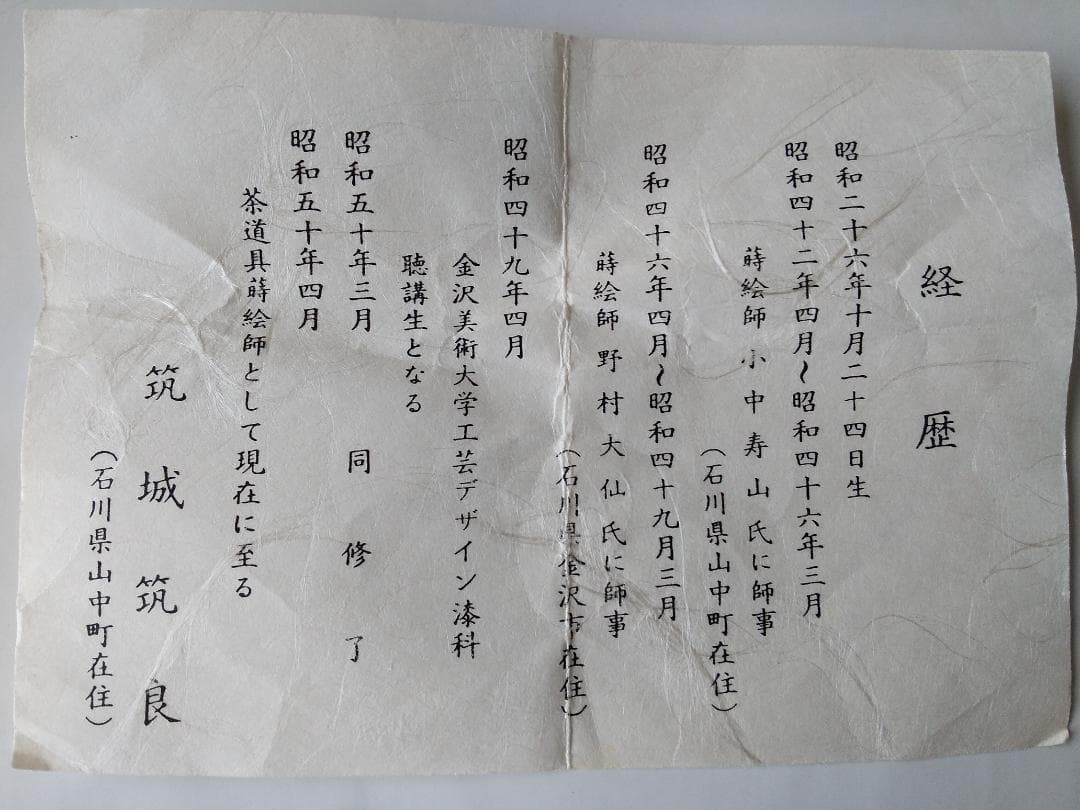 経歴
昭和二十六年十月二十四日生
昭和四十二年四月~昭和四十六年三月
蒔絵師 小中寿山氏に師事
(石川県山中町在住)
昭和四十六年四月~昭和四十九月三月
蒔絵師 野村大仙氏に師事
(石川県金沢市在住)
昭和四十九年四月
金沢美術大学工芸デザイン漆科
聴講生となる
昭和五十年三月 同修了
昭和五十年四月
茶道具蒔絵師として現在に至る
筑城筑良
(石川県山中町在住)